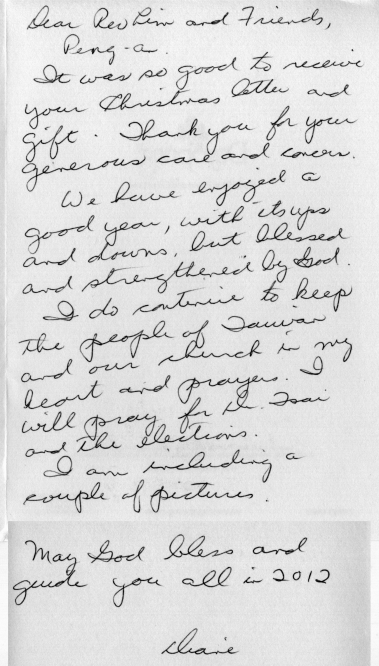 Dear Rev Lim and Friends,
Peng-an.
It was so good to receive
your Christmas letter and
gift. Thank you for your
generous care and concern.
We have enjoyed a
good year, with its ups
and downs, but blessed
and strengthened by God.
I do continue to keep
the people of Taiwan
and our church in my
heart and prayers. I
will pray for Dr. Tsai
and the elections.
I am including a
couple of pictures.
May God bless and
guide you all in 2012
Diane